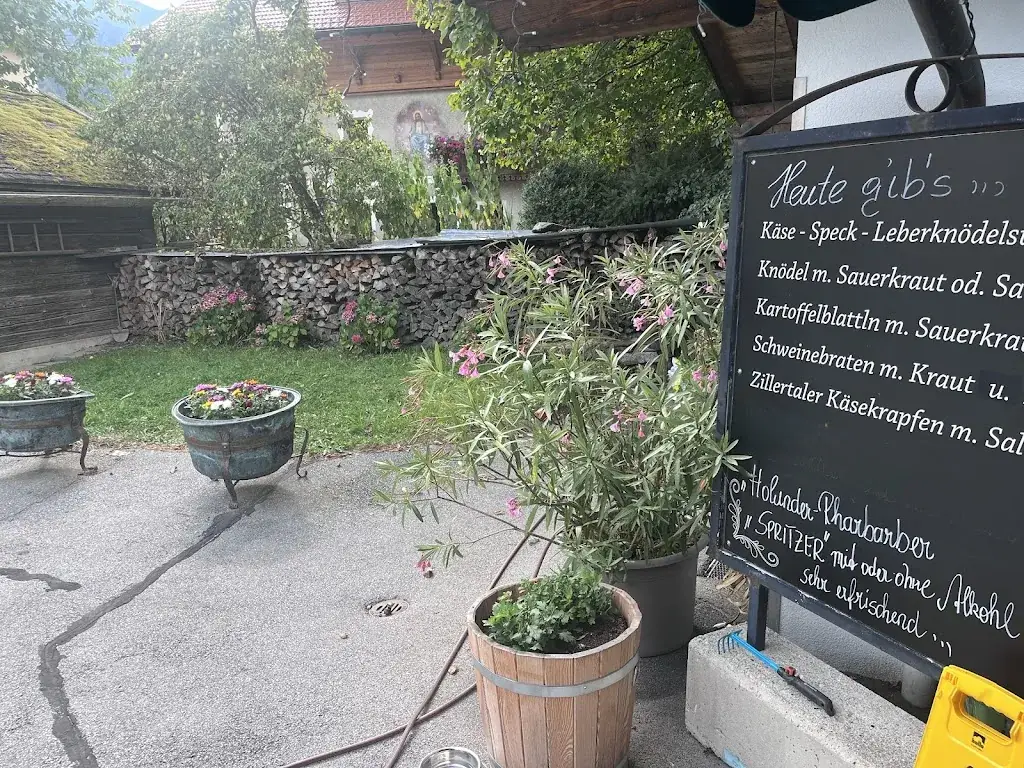 Heute gib's ,,,
Käse - Speck - Leberknödels
Knödel m. Sauerkraut od. Sa
Kartoffelblattln m. Sauerkra
Schweinebraten m. Kraut u.
Zillertaler Käsekrapfen m. Sal
"Holunder-Rharbarber
"SPRITZER" mit oder ohne Alkohl
sehr erfrischend ,,,